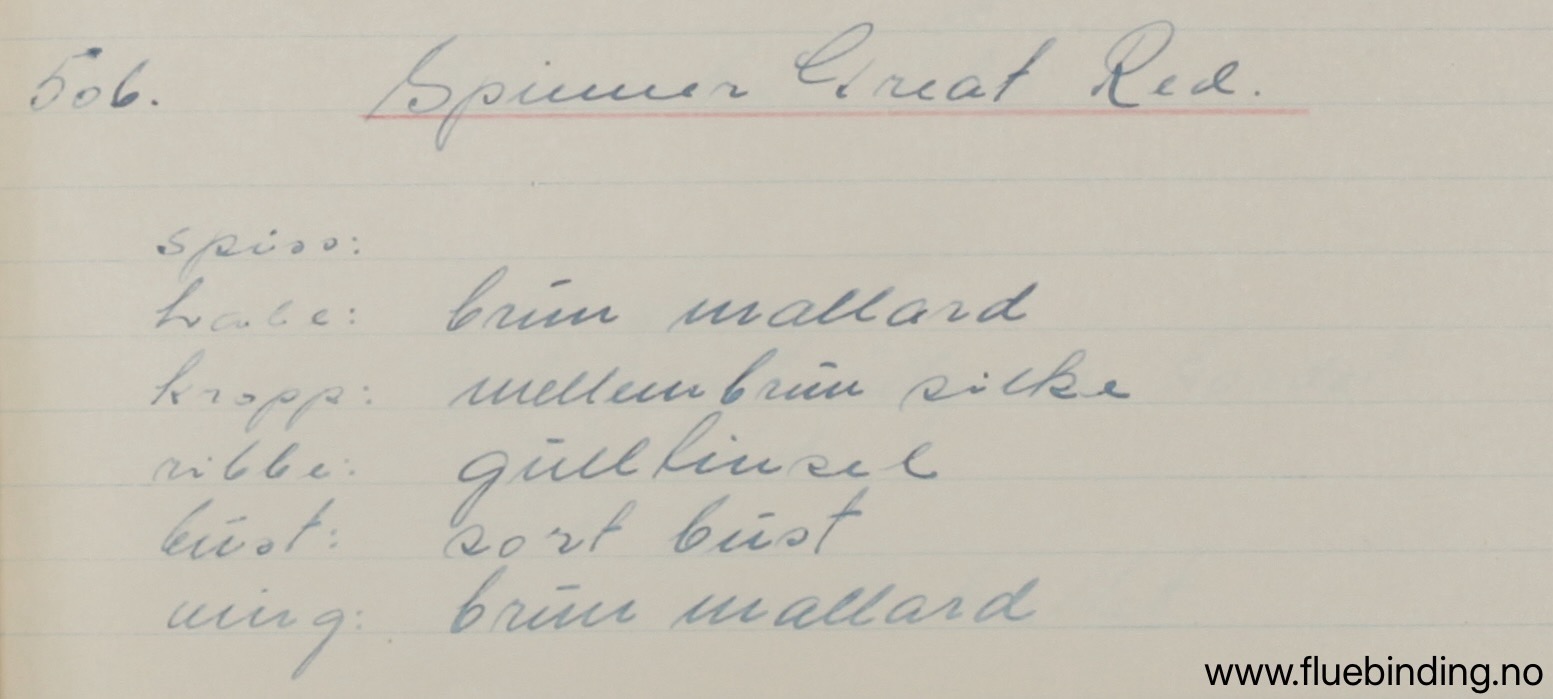 506. Spinner Great Red.
spiss:
hale: brun mallard
kropp: mellembrun silke
ribbe: gulltinsel
bust: sort bust
ving: brun mallard
www.fluebinding.no